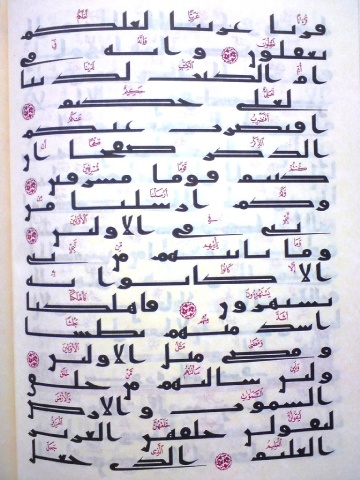 قرنا عربيا لعلكم
تعقلون وانه في
ام الكتب لدينا
لعلي حكيم
افنضرب عنكم
الذكر صفحا ان
كنتم قوما مسرفين
وكم ارسلنا من
نبي في الاولين
وما ياتيهم من نبي
الا كانوا به
يستهزون فاهلكنا
اشد منهم بطشا
ومضى مثل الاولين
ولين سالتهم من خلق
السموت والارض
ليقولن خلقهن العزيز
العليم الذي جعل